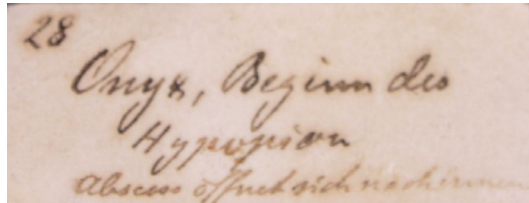 28
Onyx, Beginn des
Hypopion
Abscess öffnet sich nach innen